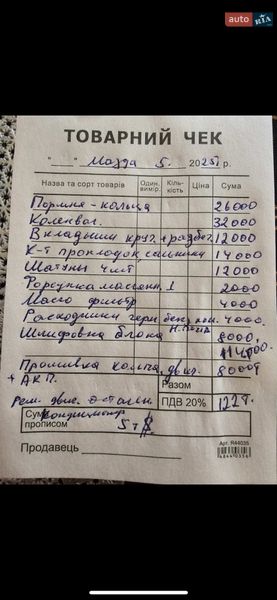 auto RIA
ТОВАРНИЙ ЧЕК
"___" Мазда 5. 2025 р.
Назва та сорт товарів Один. вимір. Кіль-кість Ціна Сума
Поршня - кольца 26000
Коленвал. 32000
Вкладыши 12000
К-т прокладок сальники 14000
Шатуны 4шт 12000
Форсунка маслян. 1 2000
Масло фильтр 4000
Расходники 4000.
Шлифовка блока 8000,
Прошивка компа, двиг. 8000
+ АКП. Разом
Рем. двиг. ПДВ 20% 122т.
Сума прописом кондиционер 5т $
Продавець Арт. R44035